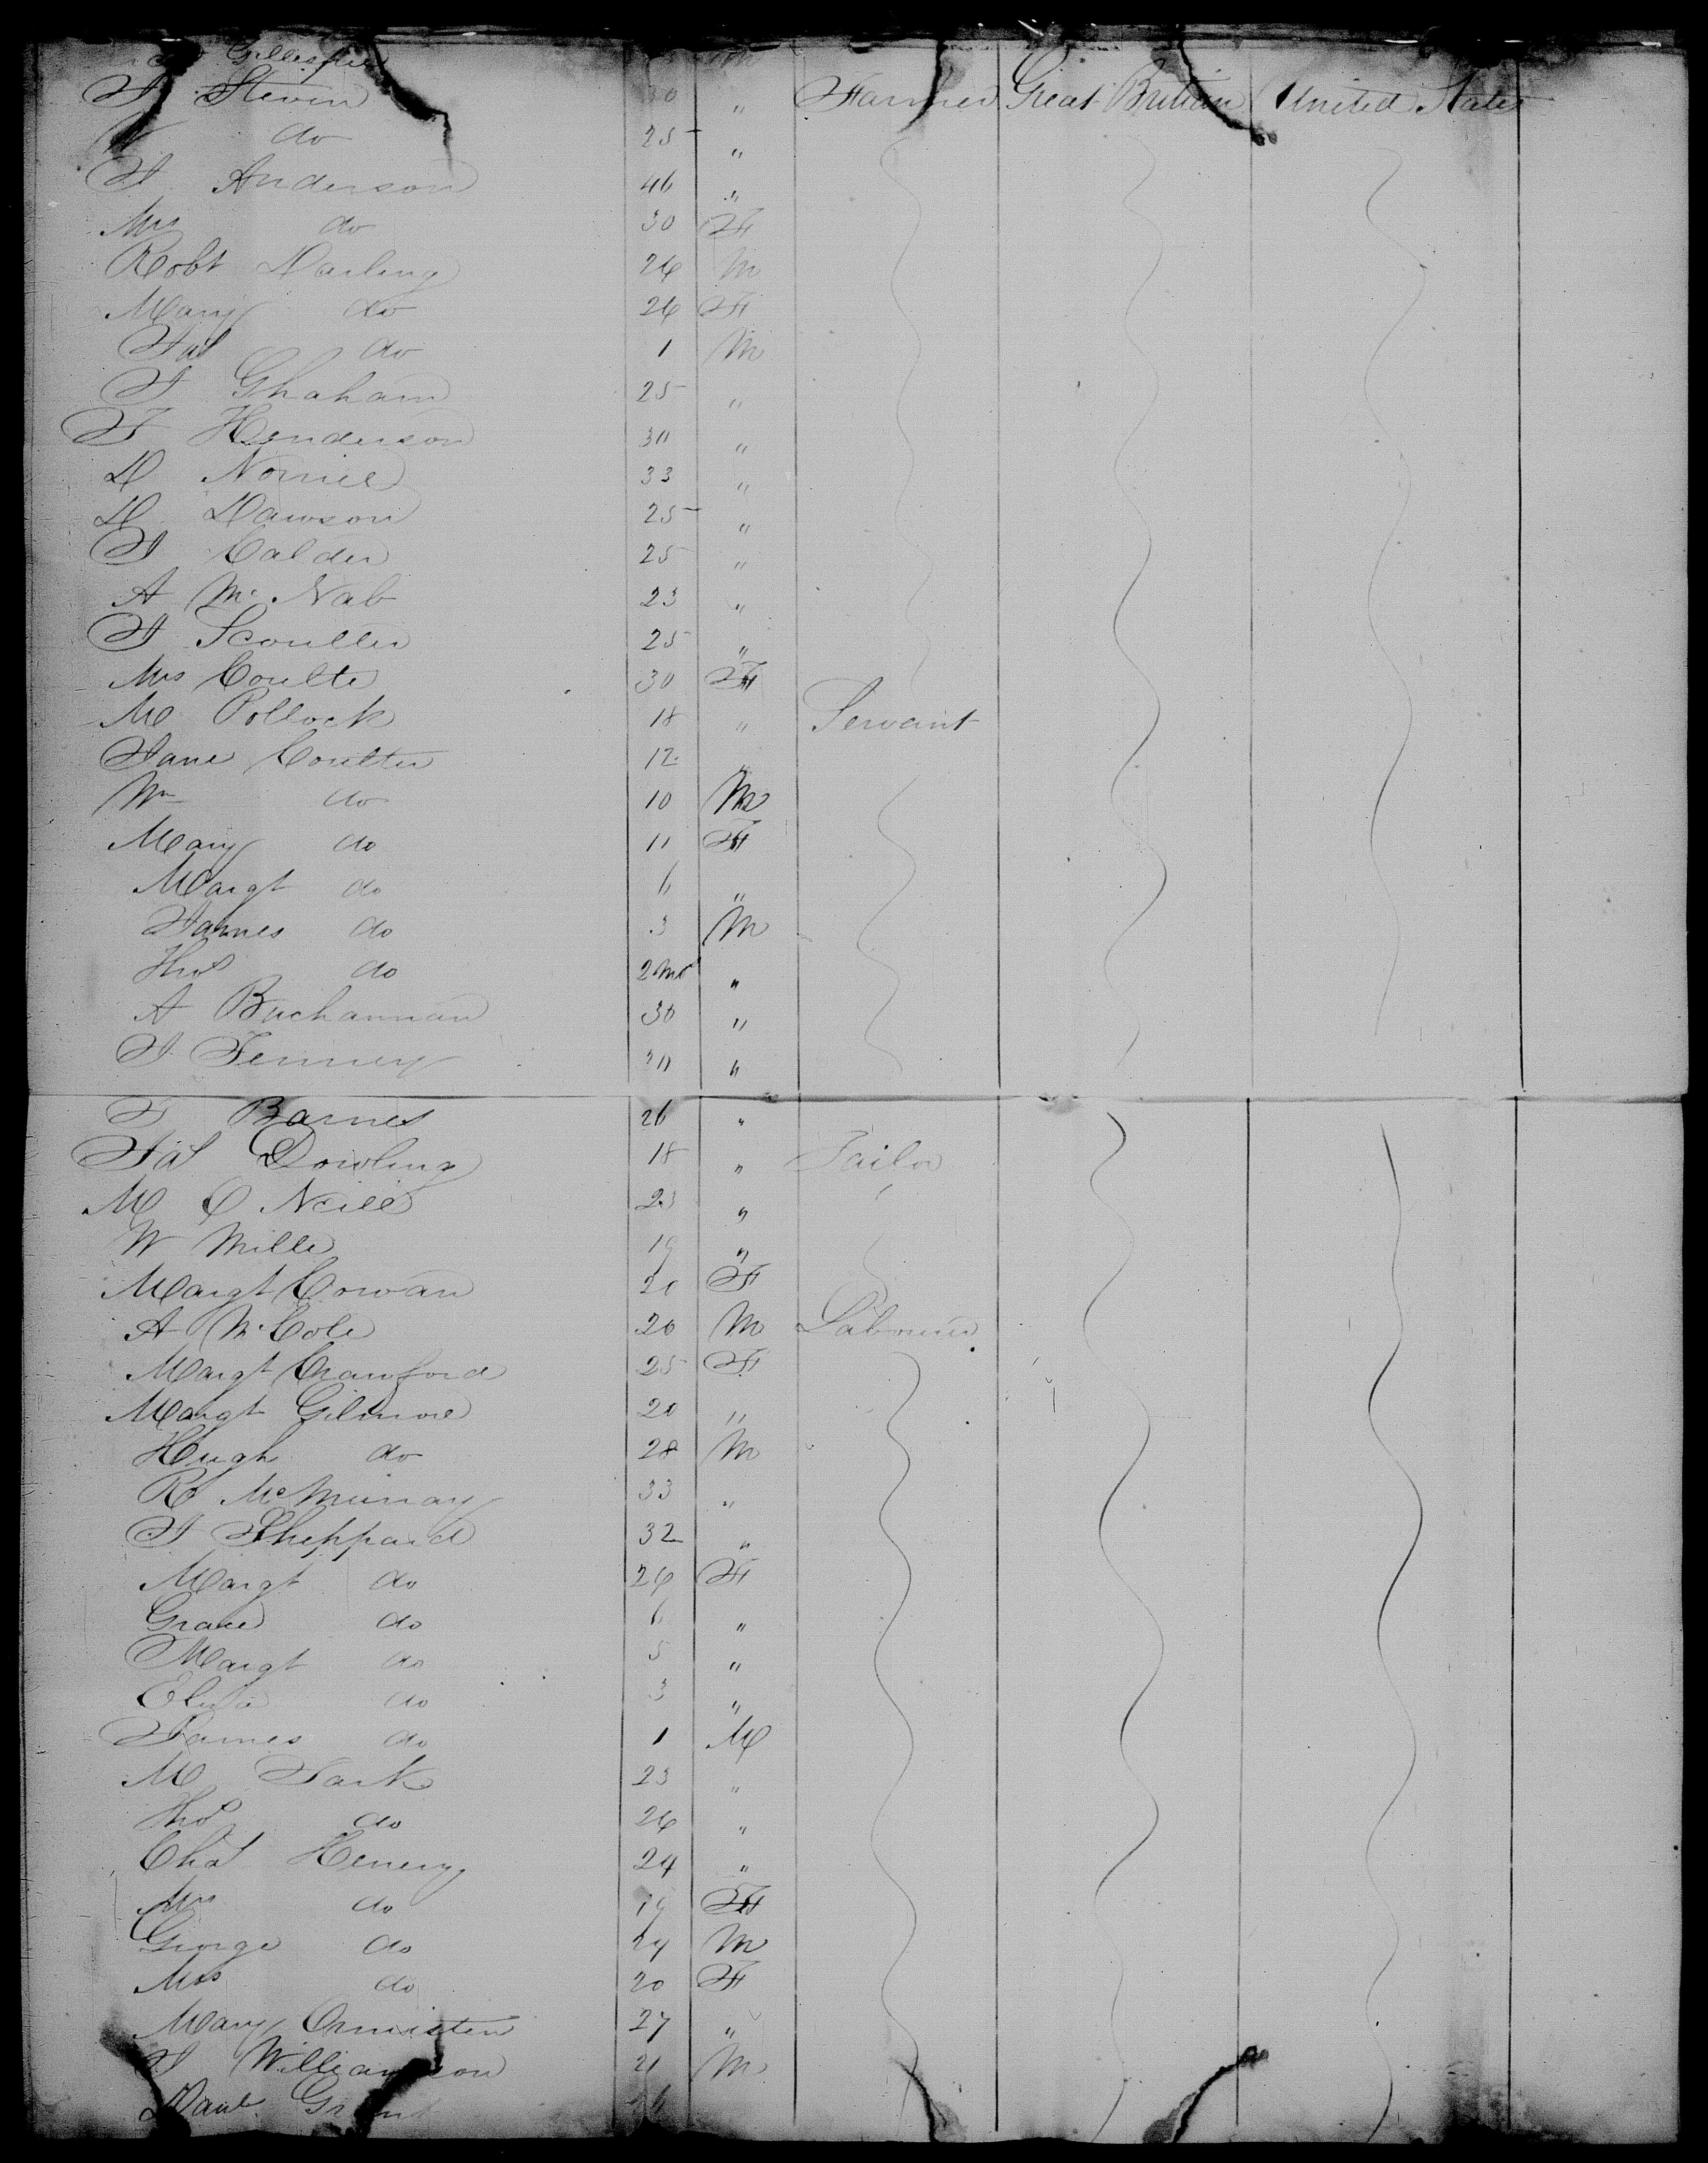 Gillespie
J Steven 30 " Farmer Great Britain United States
W do 25 "
J Anderson 46 "
Mrs do 30 F
Robt Darling 26 M
Mary do 26 F
Jas do 1 M
J Ghaham 25 "
J Henderson 30 "
D Norriel 33 "
D Dawson 25 "
J Calder 25 "
A Mc Nab 23 "
J Scoulter 25 "
Mrs Coulte 30 F
M Pollock 18 " Servant
Jane Coulter 12 "
Wm do 10 M
Mary do 11 F
Margt do 6 "
James do 3 M
Thos do 2 mos "
A Buchannan 30 "
J Fenney "
J Barnes 26 "
Jas Dowling 18 " Tailor
M O Neill 23 "
W Mille 19 "
Margt Cowan F
A McCole 20 M Labourer
Margt Crawford 25 F
Margt Gilmore 20 "
Hugh do 28 M
Rt McMurray 33 "
J Sheppard 32 "
Margt do 26 F
Grace do 6 "
Margt do 5 "
Eliza do 3 "
James do 1 M
M Park 23 "
Thos do 26 "
Chas Henery 24 "
Mrs do 19 F
George do 24 M
Mrs do 20 F
Mary Ormisten 27 "
J Williamson 21 M
Grant